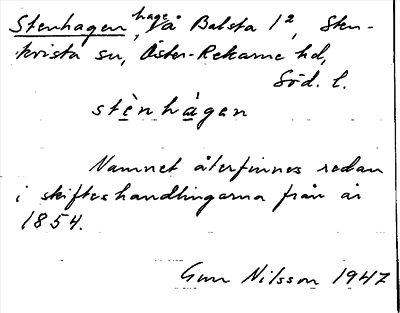 Stenhagen, hage, på Balsta 1², Sten-
kvista sn, Öster-Rekarne hd,
Söd. l.
stè̱nhà̱gan
Namnet återfinnes redan
i skifteshandlingarna från år
1854.
Gun Nilsson 1947